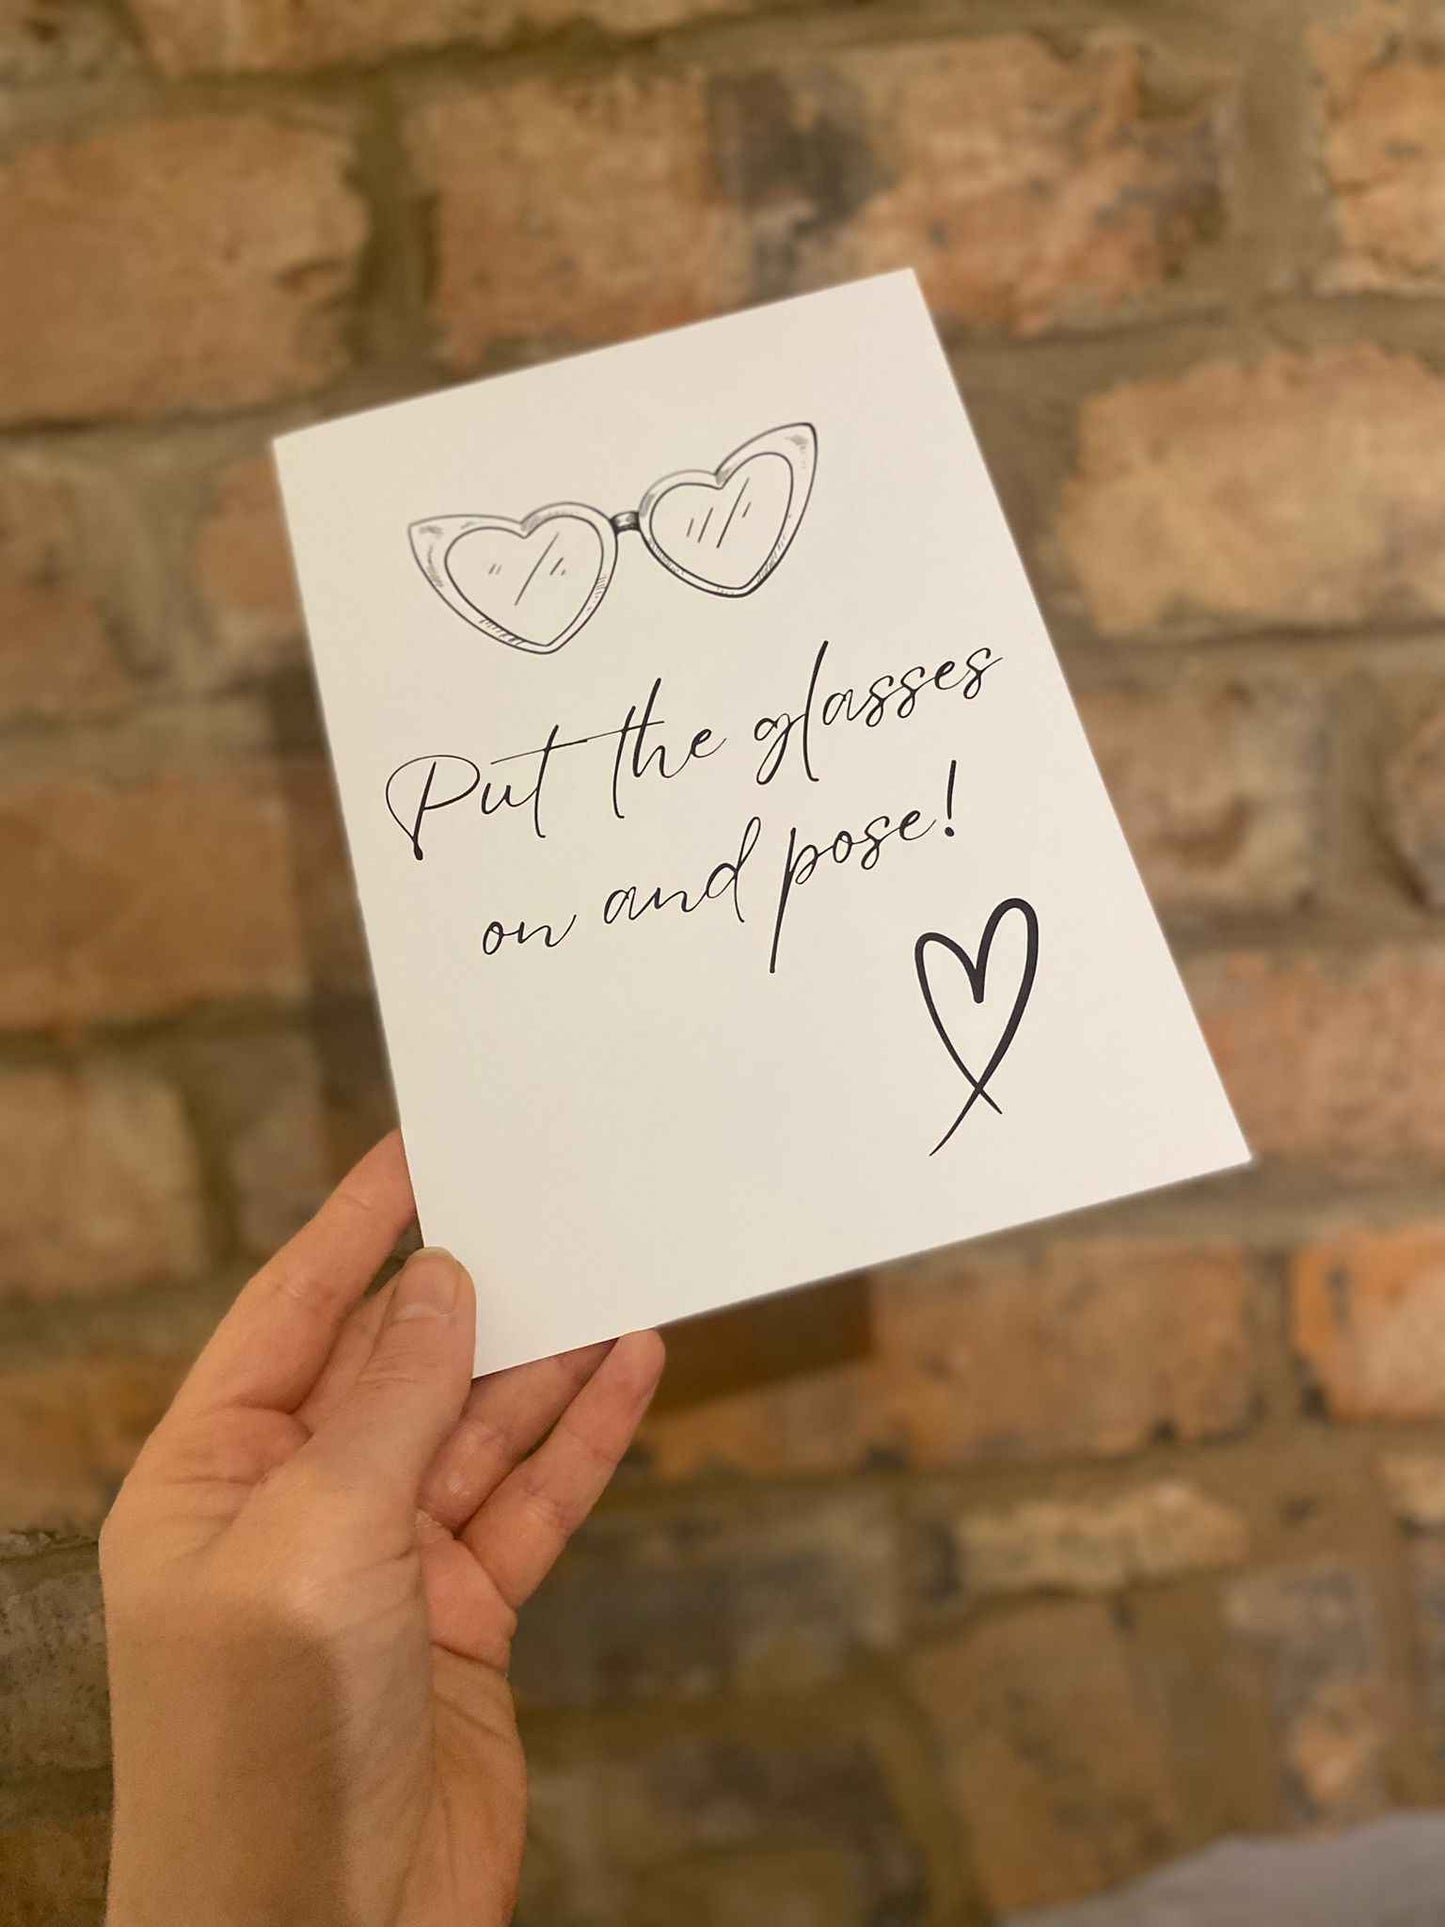 Put the glasses
on and pose!